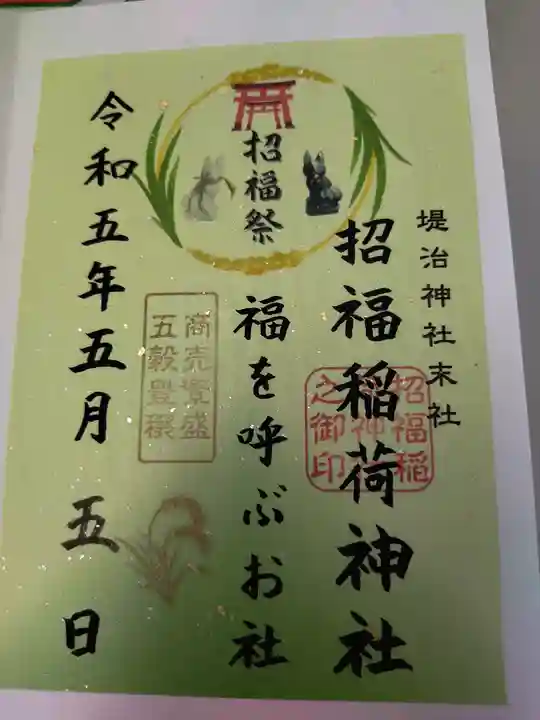 堤治神社末社
招福稲荷神社
招福稲
之御印
招福祭
福を呼ぶお社
商売繁盛
五穀豊穣
令和五年五月五日